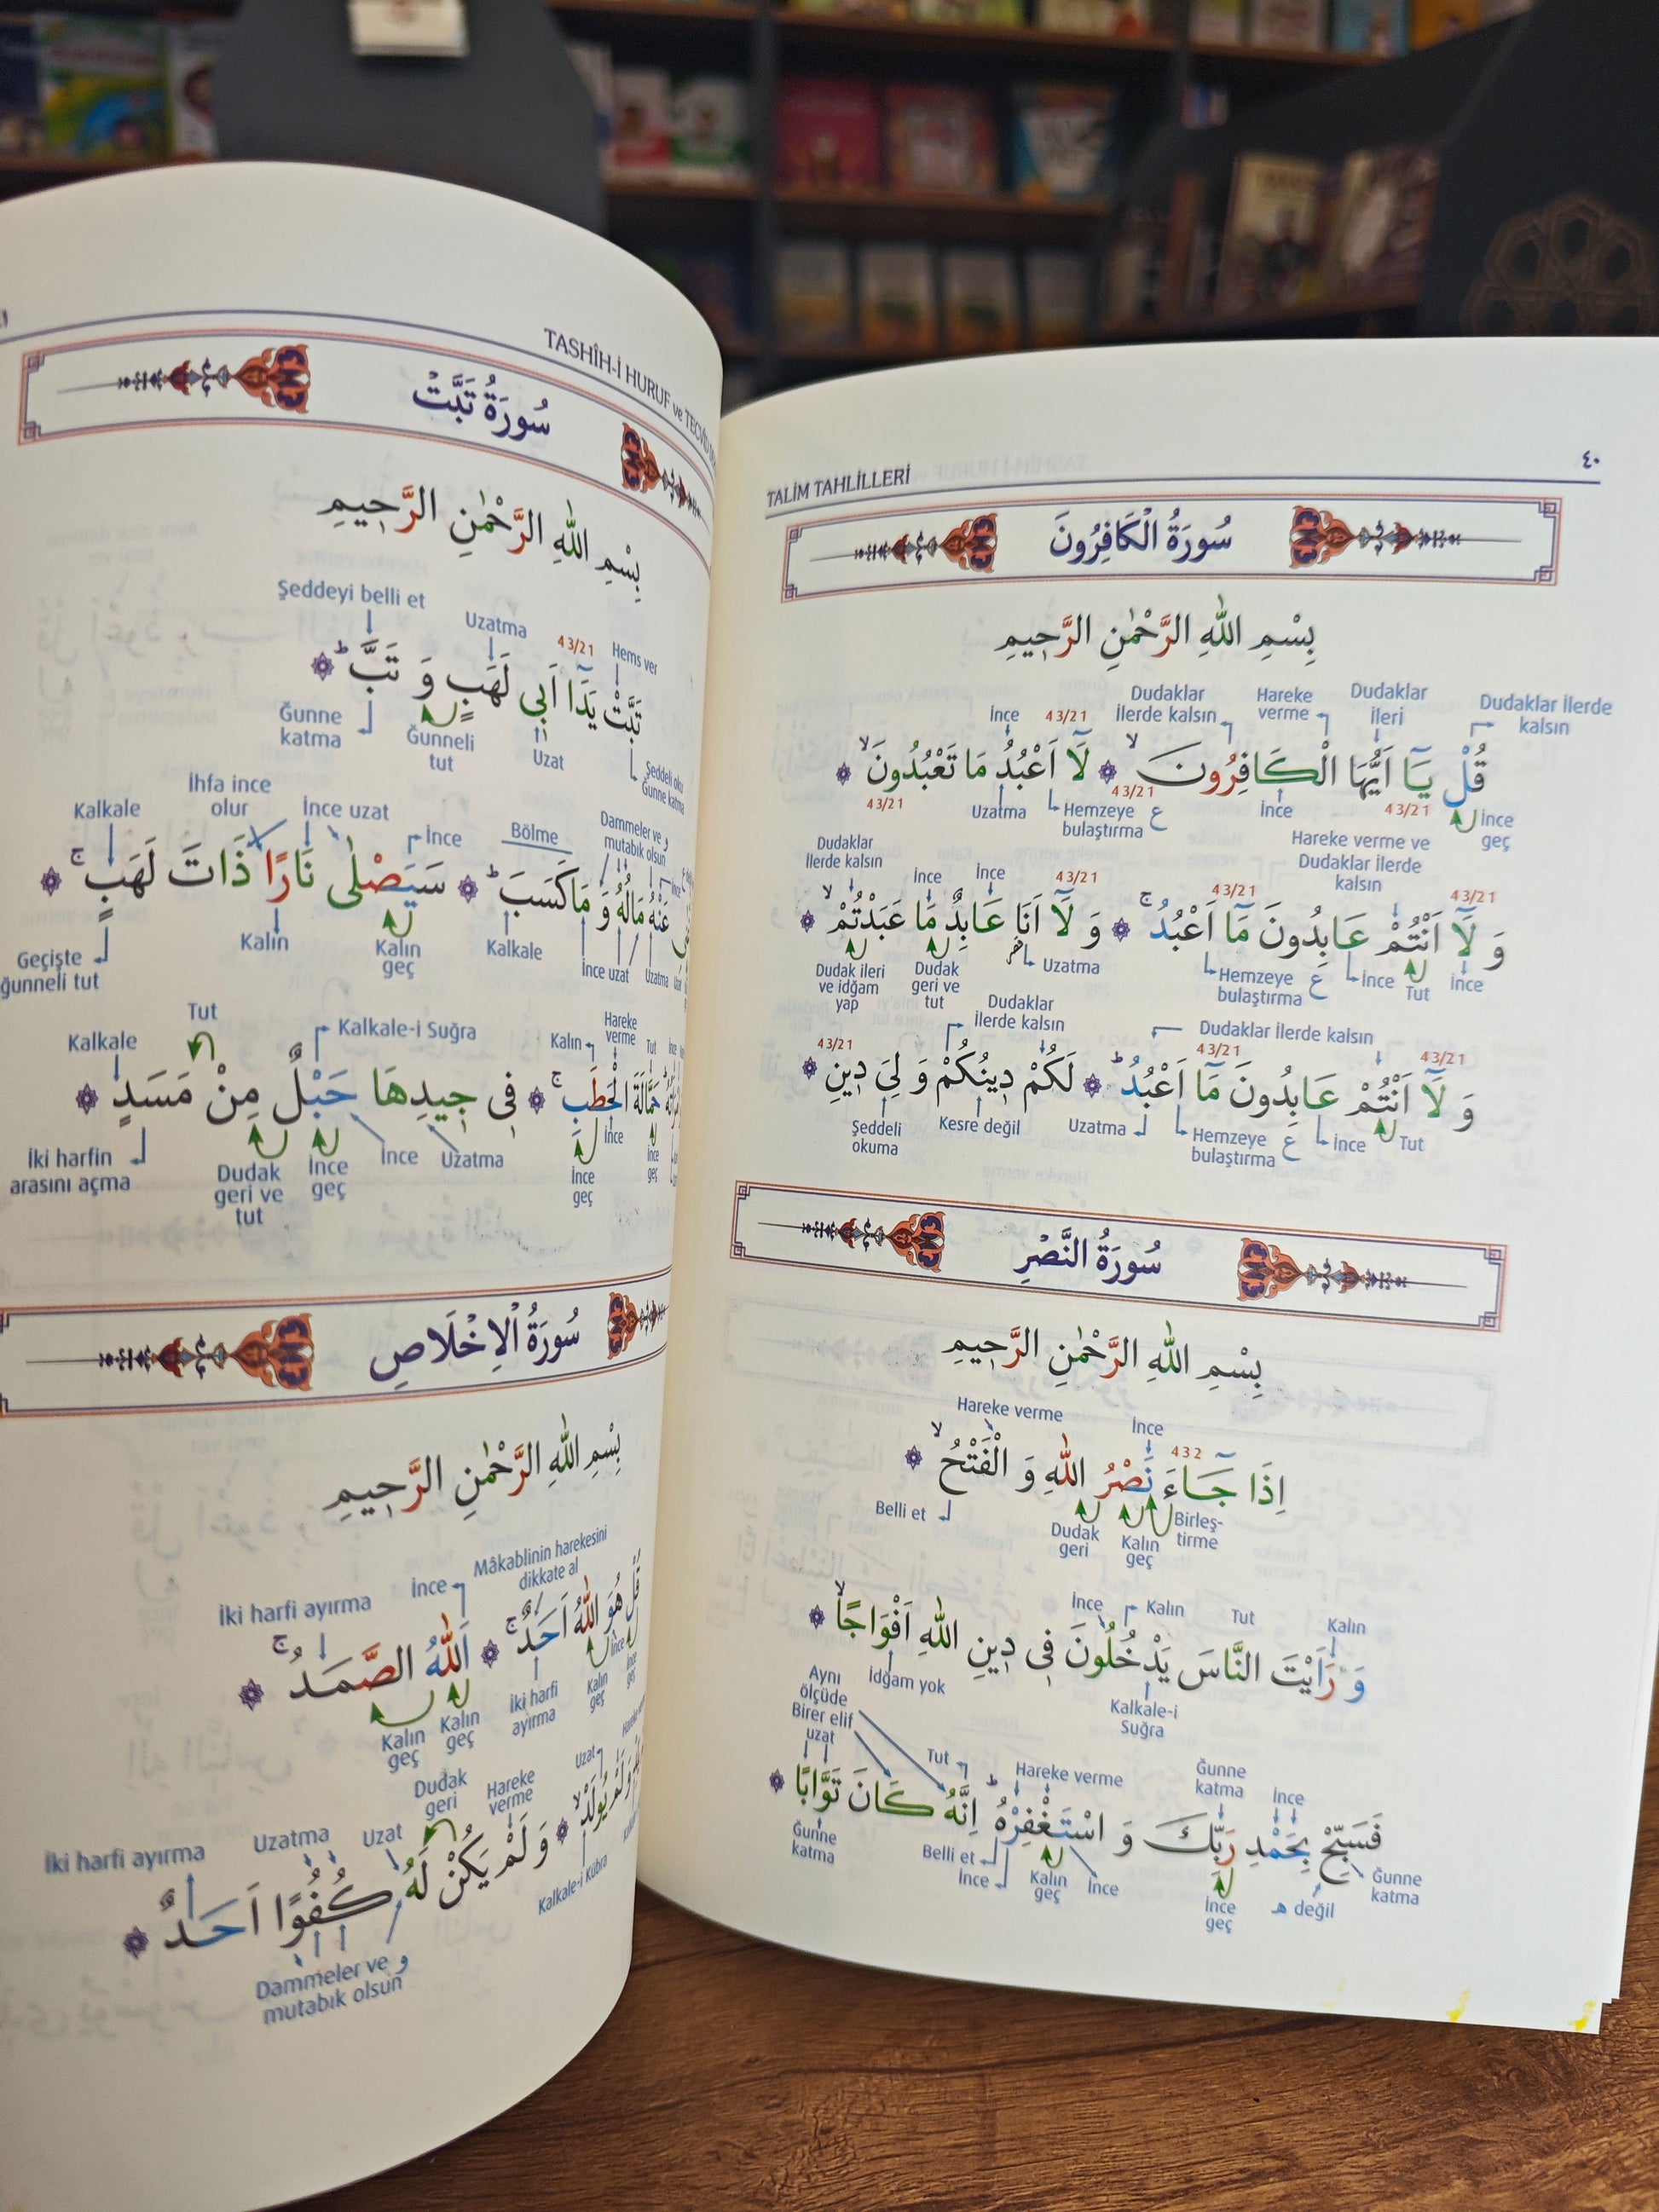 TALİM TAHLİLLERİ
٤٠
سُورَةُ الْكَافِرُونَ
بِسْمِ اللّٰهِ الرَّحْمٰنِ الرَّح۪يمِ
Dudaklar İlerde kalsın
Dudaklar ileri
Hareke verme
Dudaklar İlerde kalsın
43/21
İnce
قُلْ يَٓا اَيُّهَا الْكَافِرُونَۙ ۞ لَٓا اَعْبُدُ مَا تَعْبُدُونَۙ ۞
İnce geç
43/21
İnce
43/21
ع Hemzeye bulaştırma
Uzatma
43/21
43/21
Hareke verme ve Dudaklar ilerde kalsın
43/21
43/21
İnce
İnce
Dudaklar İlerde kalsın
وَ لَٓا اَنْتُمْ عَابِدُونَ مَٓا اَعْبُدُۚ ۞ وَ لَٓا اَنَا عَابِدٌ مَا عَبَدْتُمْۙ ۞
İnce
Tut
İnce
ع Hemzeye bulaştırma
Uzatma
Dudak geri ve tut
Dudak ileri ve idğam yap
43/21
Dudaklar ilerde kalsın
43/21
Dudaklar İlerde kalsın
43/21
وَ لَٓا اَنْتُمْ عَابِدُونَ مَٓا اَعْبُدُۜ ۞ لَكُمْ د۪ينُكُمْ وَ لِيَ د۪ينِ ۞
Tut
İnce
ع Hemzeye bulaştırma
Uzatma
Kesre değil
Şeddeli okuma
سُورَةُ النَّصْرِ
بِسْمِ اللّٰهِ الرَّحْمٰنِ الرَّح۪يمِ
432
İnce
Hareke verme
اِذَا جَٓاءَ نَصْرُ اللّٰهِ وَ الْفَتْحُۙ ۞
Birleştirme
Kalın geç
Dudak geri
Belli et
Kalın
Tut
Kalın
İnce
وَ رَاَيْتَ النَّاسَ يَدْخُلُونَ ف۪ي د۪ينِ اللّٰهِ اَفْوَاجًاۙ ۞
Kalkale-i Suğra
İdğam yok
İnce
Ğunne katma
Hareke verme
Tut
Aynı ölçüde Birer elif uzat
فَسَبِّحْ بِحَمْدِ رَبِّكَ وَ اسْتَغْفِرْهُۜ اِنَّهُ كَانَ تَوَّابًا ۞
Ğunne katma
ھ değil
İnce geç
İnce
Kalın geç
Belli et
İnce
Ğunne katma
TASHÎH-İ HURUF ve
سُورَةُ تَبَّتْ
بِسْمِ اللّٰهِ الرَّحْمٰنِ الرَّح۪يمِ
Hems ver
43/21
Uzatma
Şeddeyi belli et
تَبَّتْ يَدَٓا اَب۪ي لَهَبٍ وَ تَبَّۜ ۞
Şeddeli oku Ğunne katma
Uzat
Ğunneli tut
Ğunne katma
Dammeler ve و mutabık olsun
Bölme
İnce
İnce uzat
İhfa ince olur
Kalkale
عَنْهُ مَالُهُ وَ مَا كَسَبَۜ ۞ سَيَصْلٰى نَارًا ذَاتَ لَهَبٍۚ ۞
Uzatma
İnce uzat
Kalkale
Kalın geç
Kalın
Geçişte ğunneli tut
Tut
Hareke verme
Kalın
Kalkale-i Suğra
Tut
Kalkale
حَمَّالَةَ الْحَطَبِۚ ۞ ف۪ي ج۪يدِهَا حَبْلٌ مِنْ مَسَدٍ ۞
İnce geç
İnce
İnce geç
Uzatma
İnce
İnce geç
Dudak geri ve tut
İki harfin arasını açma
سُورَةُ الْاِخْلَاصِ
بِسْمِ اللّٰهِ الرَّحْمٰنِ الرَّح۪يمِ
Mâkablinin harekesini dikkate al
İnce
İki harfi ayırma
قُلْ هُوَ اللّٰهُ اَحَدٌۚ ۞ اَللّٰهُ الصَّمَدُۚ ۞
İnce geç
İnce
Kalın geç
İki harfi ayırma
Kalın geç
Kalın geç
Uzat
Hareke verme
Dudak geri
Uzat
Uzatma
İki harfi ayırma
وَلَمْ يُولَدْۙ ۞ وَ لَمْ يَكُنْ لَهُ كُفُوًا اَحَدٌ ۞
Kalkale-i Kübra
Dammeler ve و mutabık olsun